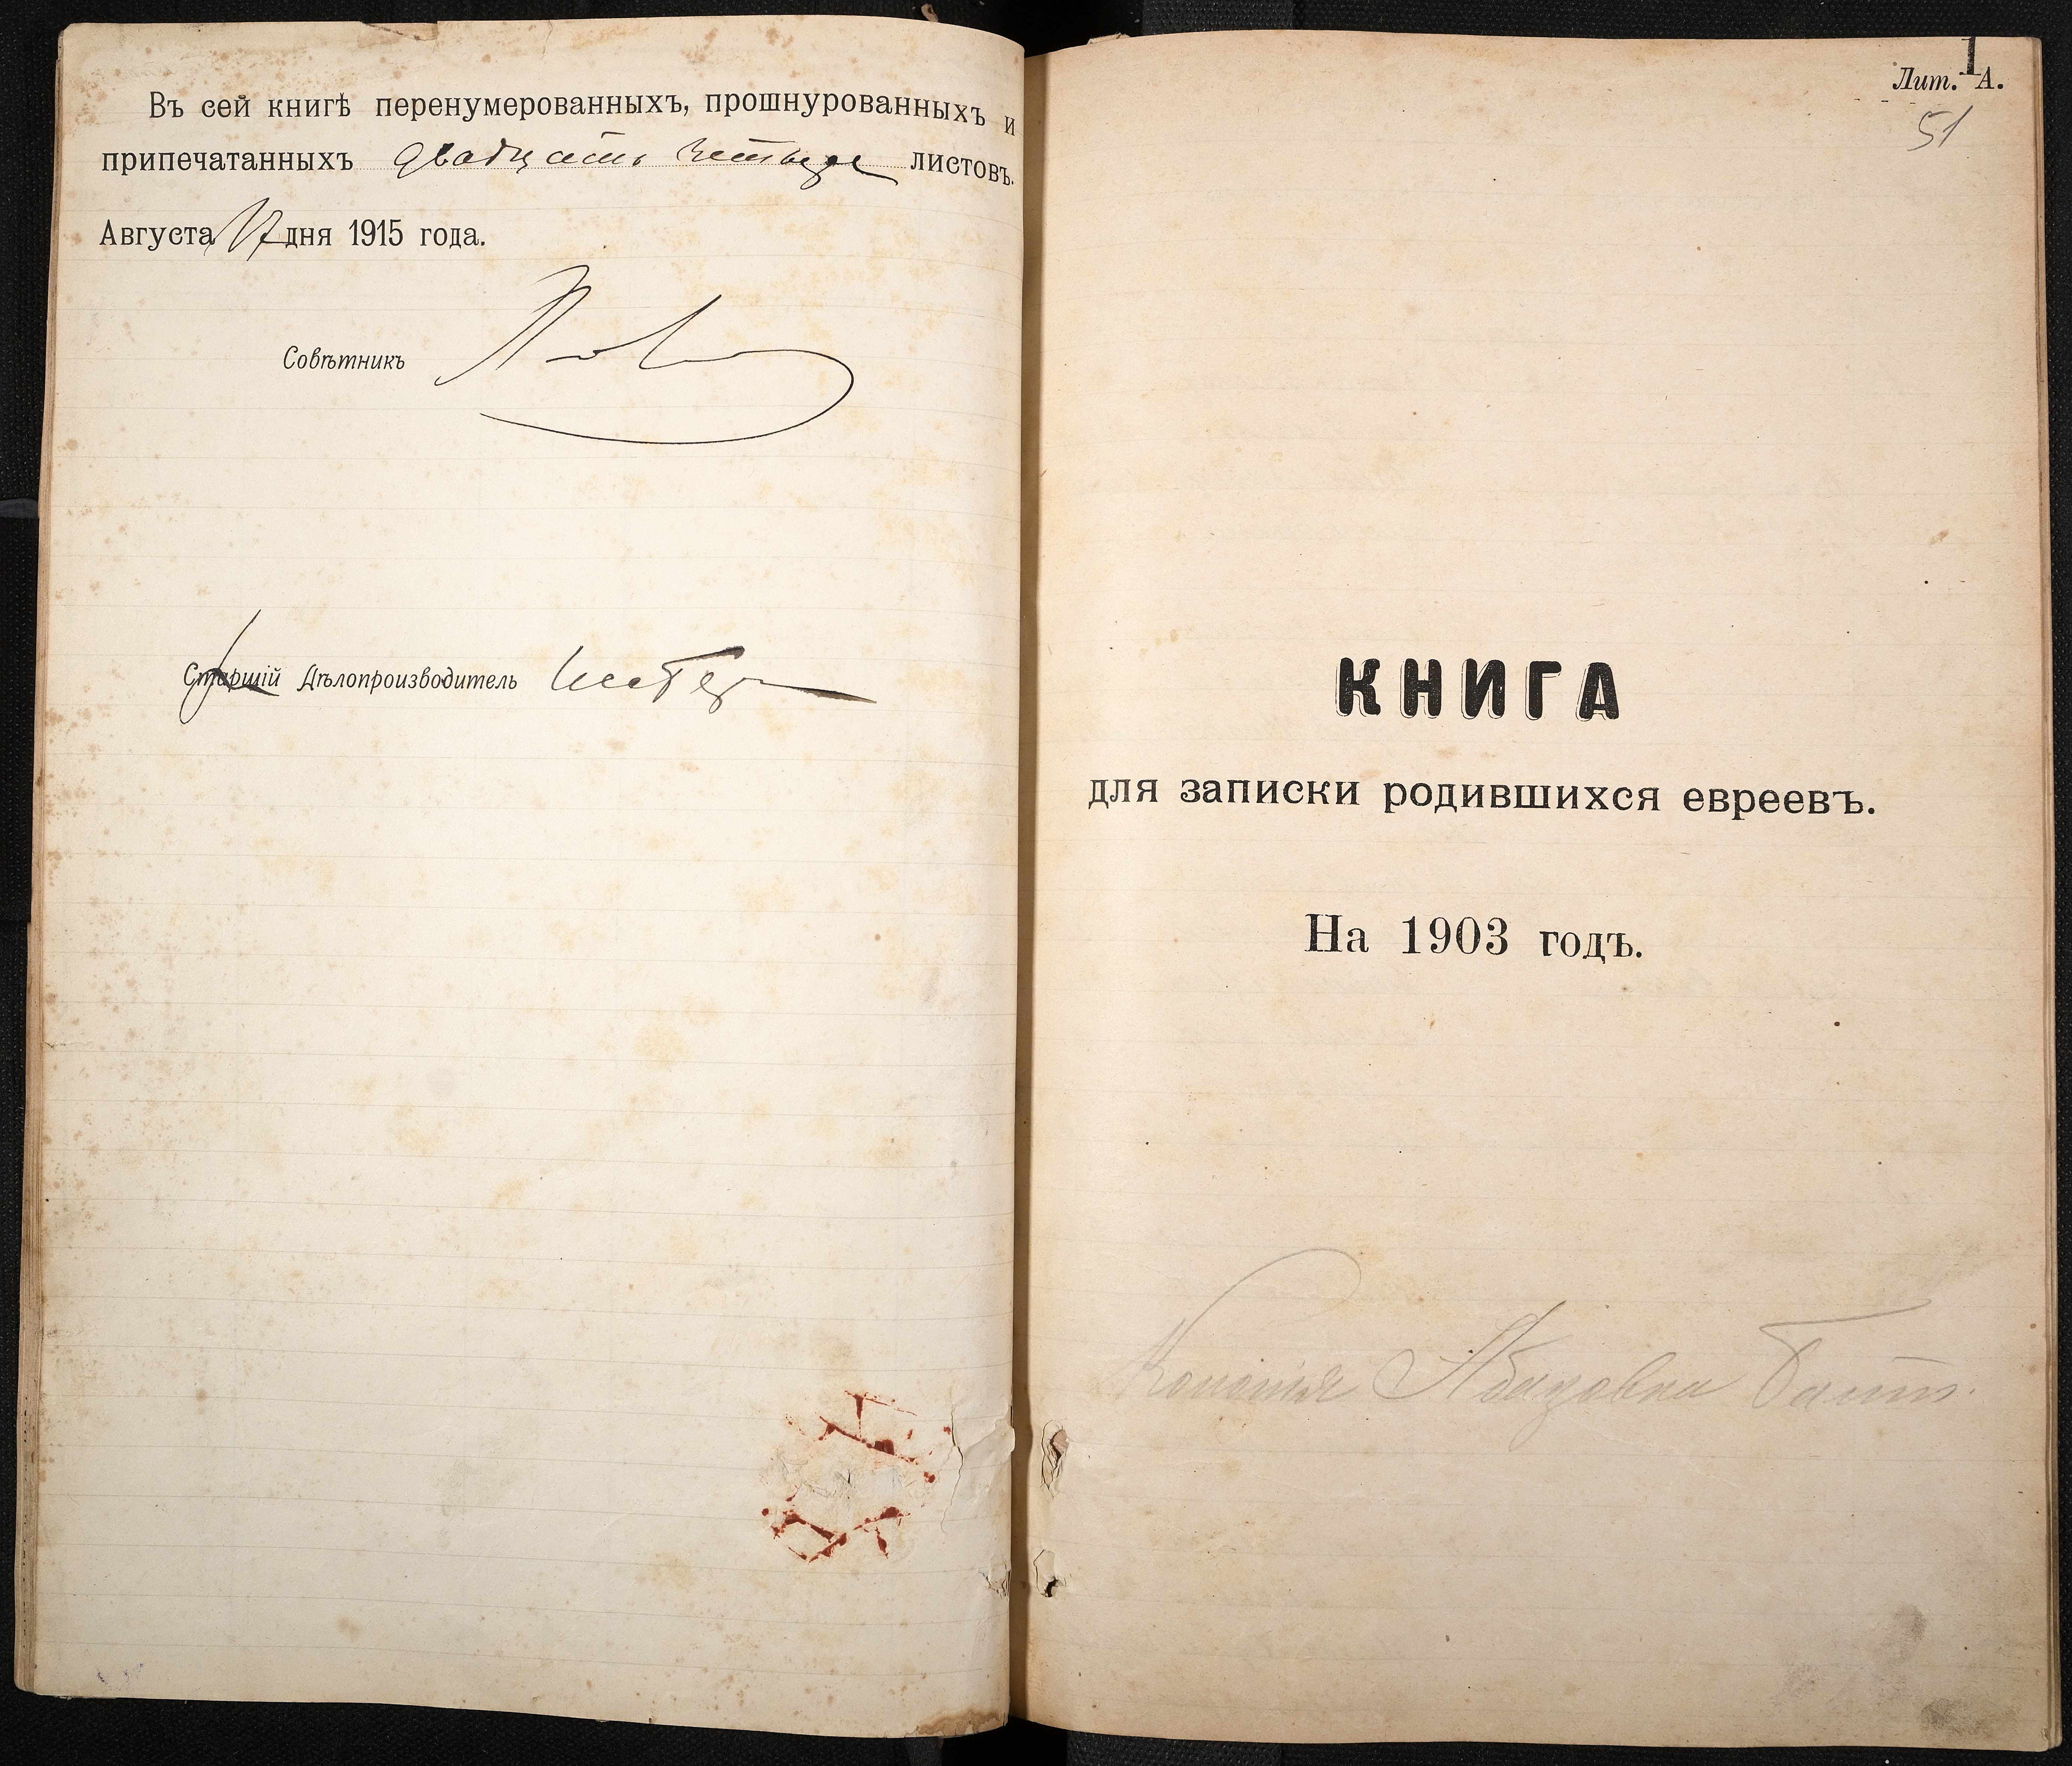 Въ сей книгѣ перенумерованныхъ, прошнурованныхъ и
припечатанныхъ двадцать четыре листовъ.
Августа 17 дня 1915 года.
Совѣтникъ
Старшій Дѣлопроизводитель
1
Лит. А.
51
КНИГА
для записки родившихся евреевъ.
На 1903 годъ.
Колонія Абазовка Балт.